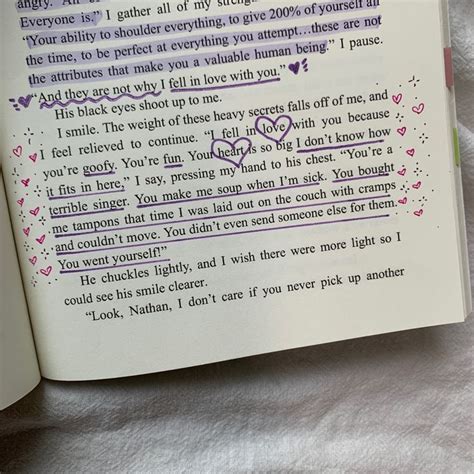 angry. An
Everyone is." I gather all of my
"Your ability to shoulder everything, to give 200% of yourself all
the time, to be perfect at everything you attempt…these are not
the attributes that make you a valuable human being." I pause.
"And they are not why I fell in love with you."
His black eyes shoot up to me.
I smile. The weight of these heavy secrets falls off of me, and
I feel relieved to continue. "I fell in love with you because
you're goofy. You're fun. Your heart is so big I don't know how
it fits in here," I say, pressing my hand to his chest. "You're a
terrible singer. You make me soup when I'm sick. You bought
me tampons that time I was laid out on the couch with cramps
and couldn't move. You didn't even send someone else for them.
You went yourself!"
He chuckles lightly, and I wish there were more light so I
could see his smile clearer.
"Look, Nathan, I don't care if you never pick up another